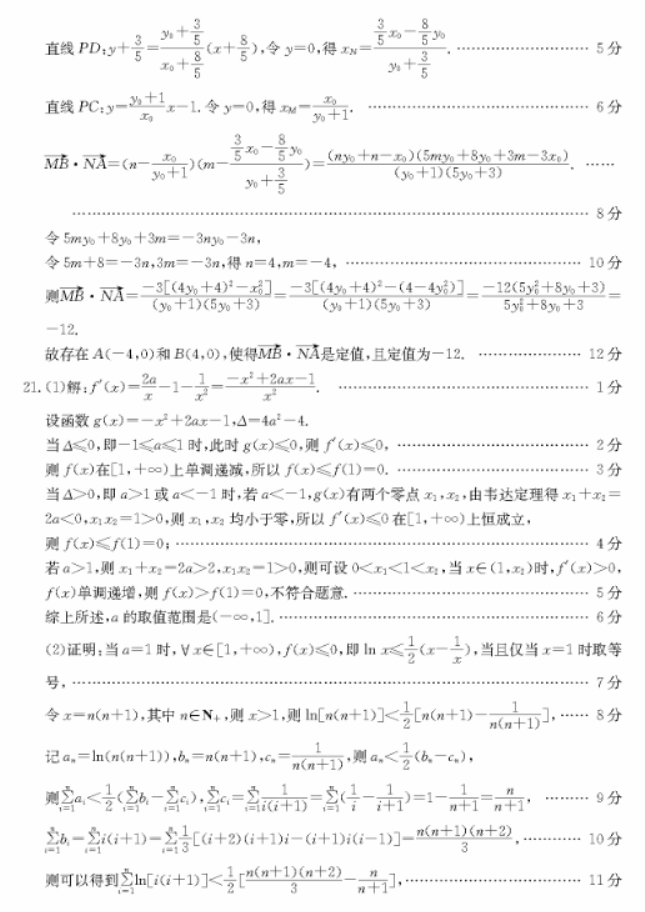 直线 PD:y+3/5=(y₀+3/5)/(x₀+8/5)(x+8/5),令 y=0,得 x_N=(3/5x₀−8/5y₀)/(y₀+3/5). …………………… 5分
直线 PC:y=(y₀+1)/x₀ x−1.令 y=0,得 x_M=x₀/(y₀+1). …………………… 6分
MB→·NA→=(n−x₀/(y₀+1))(m−(3/5x₀−8/5y₀)/(y₀+3/5))=(ny₀+n−x₀)(5my₀+8y₀+3m−3x₀)/((y₀+1)(5y₀+3)). ……
…………………… 8分
令 5my₀+8y₀+3m=−3ny₀−3n,
令 5m+8=−3n,3m=−3n,得 n=4,m=−4, …………………… 10分
则MB→·NA→=−3[(4y₀+4)²−x₀²]/((y₀+1)(5y₀+3))=−3[(4y₀+4)²−(4−4y₀²)]/((y₀+1)(5y₀+3))=−12(5y₀²+8y₀+3)/(5y₀²+8y₀+3)=
−12.
故存在 A(−4,0)和 B(4,0),使得MB→·NA→是定值,且定值为−12. …………………… 12分
21.(1)解:f′(x)=2a/x−1−1/x²=(−x²+2ax−1)/x². …………………… 1分
设函数 g(x)=−x²+2ax−1,Δ=4a²−4.
当 Δ≤0,即−1≤a≤1 时,此时 g(x)≤0,则 f′(x)≤0, …………………… 2分
则 f(x)在[1,+∞)上单调递减,所以 f(x)≤f(1)=0. …………………… 3分
当 Δ>0,即 a>1 或 a<−1 时,若 a<−1,g(x)有两个零点 x₁,x₂,由韦达定理得 x₁+x₂=
2a<0,x₁x₂=1>0,则 x₁,x₂ 均小于零,所以 f′(x)≤0 在[1,+∞)上恒成立,
则 f(x)≤f(1)=0; …………………… 4分
若 a>1,则 x₁+x₂=2a>2,x₁x₂=1>0,则可设 0<x₁<1<x₂,当 x∈(1,x₂)时,f′(x)>0,
f(x)单调递增,则 f(x)>f(1)=0,不符合题意. …………………… 5分
综上所述,a 的取值范围是(−∞,1]. …………………… 6分
(2)证明:当 a=1 时,∀x∈[1,+∞),f(x)≤0,即 ln x≤1/2(x−1/x),当且仅当 x=1 时取等
号, …………………… 7分
令 x=n(n+1),其中 n∈N₊,则 x>1,则 ln[n(n+1)]<1/2[n(n+1)−1/(n(n+1))], …… 8分
记 aₙ=ln(n(n+1)),bₙ=n(n+1),cₙ=1/(n(n+1)),则 aₙ<1/2(bₙ−cₙ),
则∑ⁿᵢ₌₁aᵢ<1/2(∑ⁿᵢ₌₁bᵢ−∑ⁿᵢ₌₁cᵢ),∑ⁿᵢ₌₁cᵢ=∑ⁿᵢ₌₁1/(i(i+1))=∑ⁿᵢ₌₁(1/i−1/(i+1))=1−1/(n+1)=n/(n+1), ……… 9分
∑ⁿᵢ₌₁bᵢ=∑ⁿᵢ₌₁i(i+1)=∑ⁿᵢ₌₁1/3[(i+2)(i+1)i−(i+1)i(i−1)]=n(n+1)(n+2)/3, ………… 10分
则可以得到∑ⁿᵢ₌₁ln[i(i+1)]<1/2[n(n+1)(n+2)/3−n/(n+1)], …………………… 11分